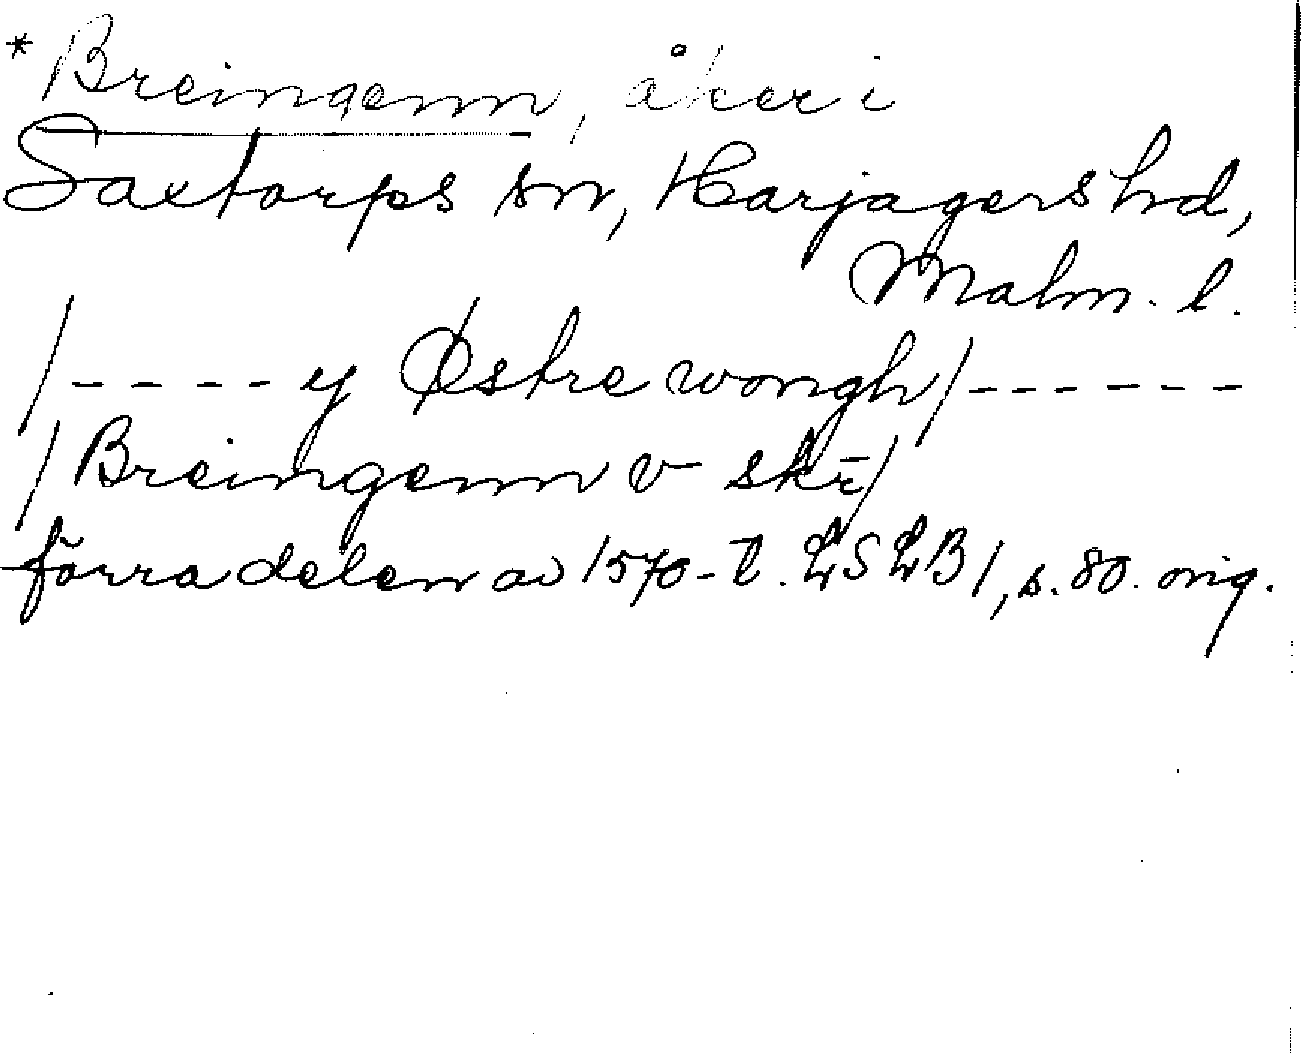 *Breingenn, åker i
Saxtorps sn, Harjagers hd,
Malm. l.
/-----y Østre wongh/------
/Breingenn v skr̄/
förra delen av 1570-t. LSLB 1, s. 80. orig.